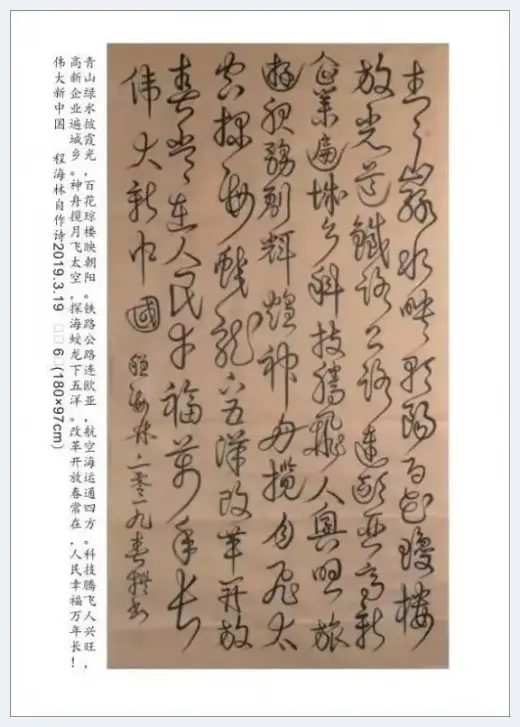 青山绿水映朝阳百花琼楼
放光芒鐵路公路連歐亞高新
企業遍城乡科技騰飛人興旺旅
游服務創輝煌神舟攬月飞太
空探海蛟龙下五洋改革开放
春常在人民幸福萬年长
伟大新中國 程海林二零一九春撰书
青山绿水披霞光，百花琼楼映朝阳。铁路公路连欧亚，航空海运通四方。科技腾飞人兴旺，
高新企业遍城乡。神舟揽月飞太空，探海蛟龙下五洋。改革开放春常在，人民幸福万年长！
伟大新中国 程海林自作诗2019.3.19 □□6□(180×97cm)